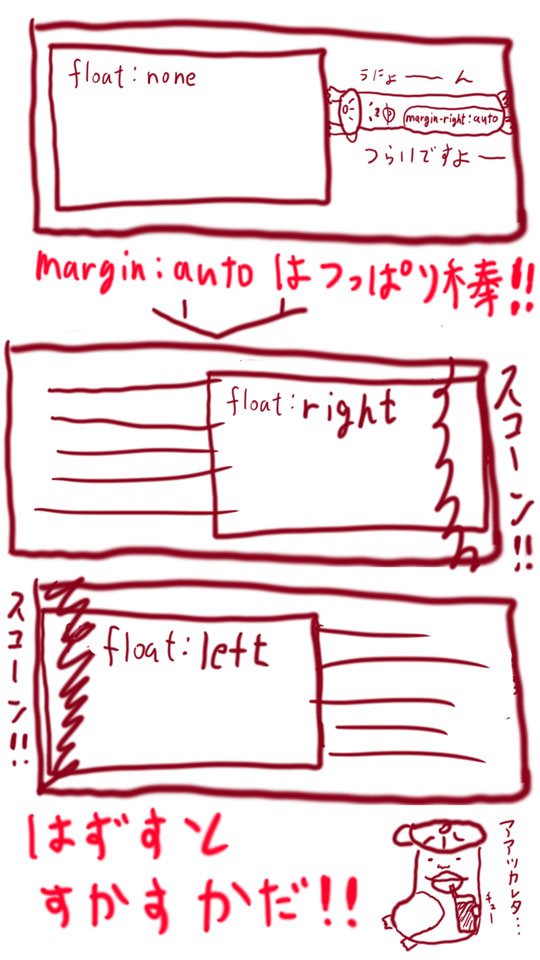 float:none
うにょーーん
margin-right:auto
つらいですよー
margin:autoはつっぱり棒!!
float:right
スコーン!!
float:left
スコーン!!
はずすと
すかすかだ!!
アアツカレタ...
チュー